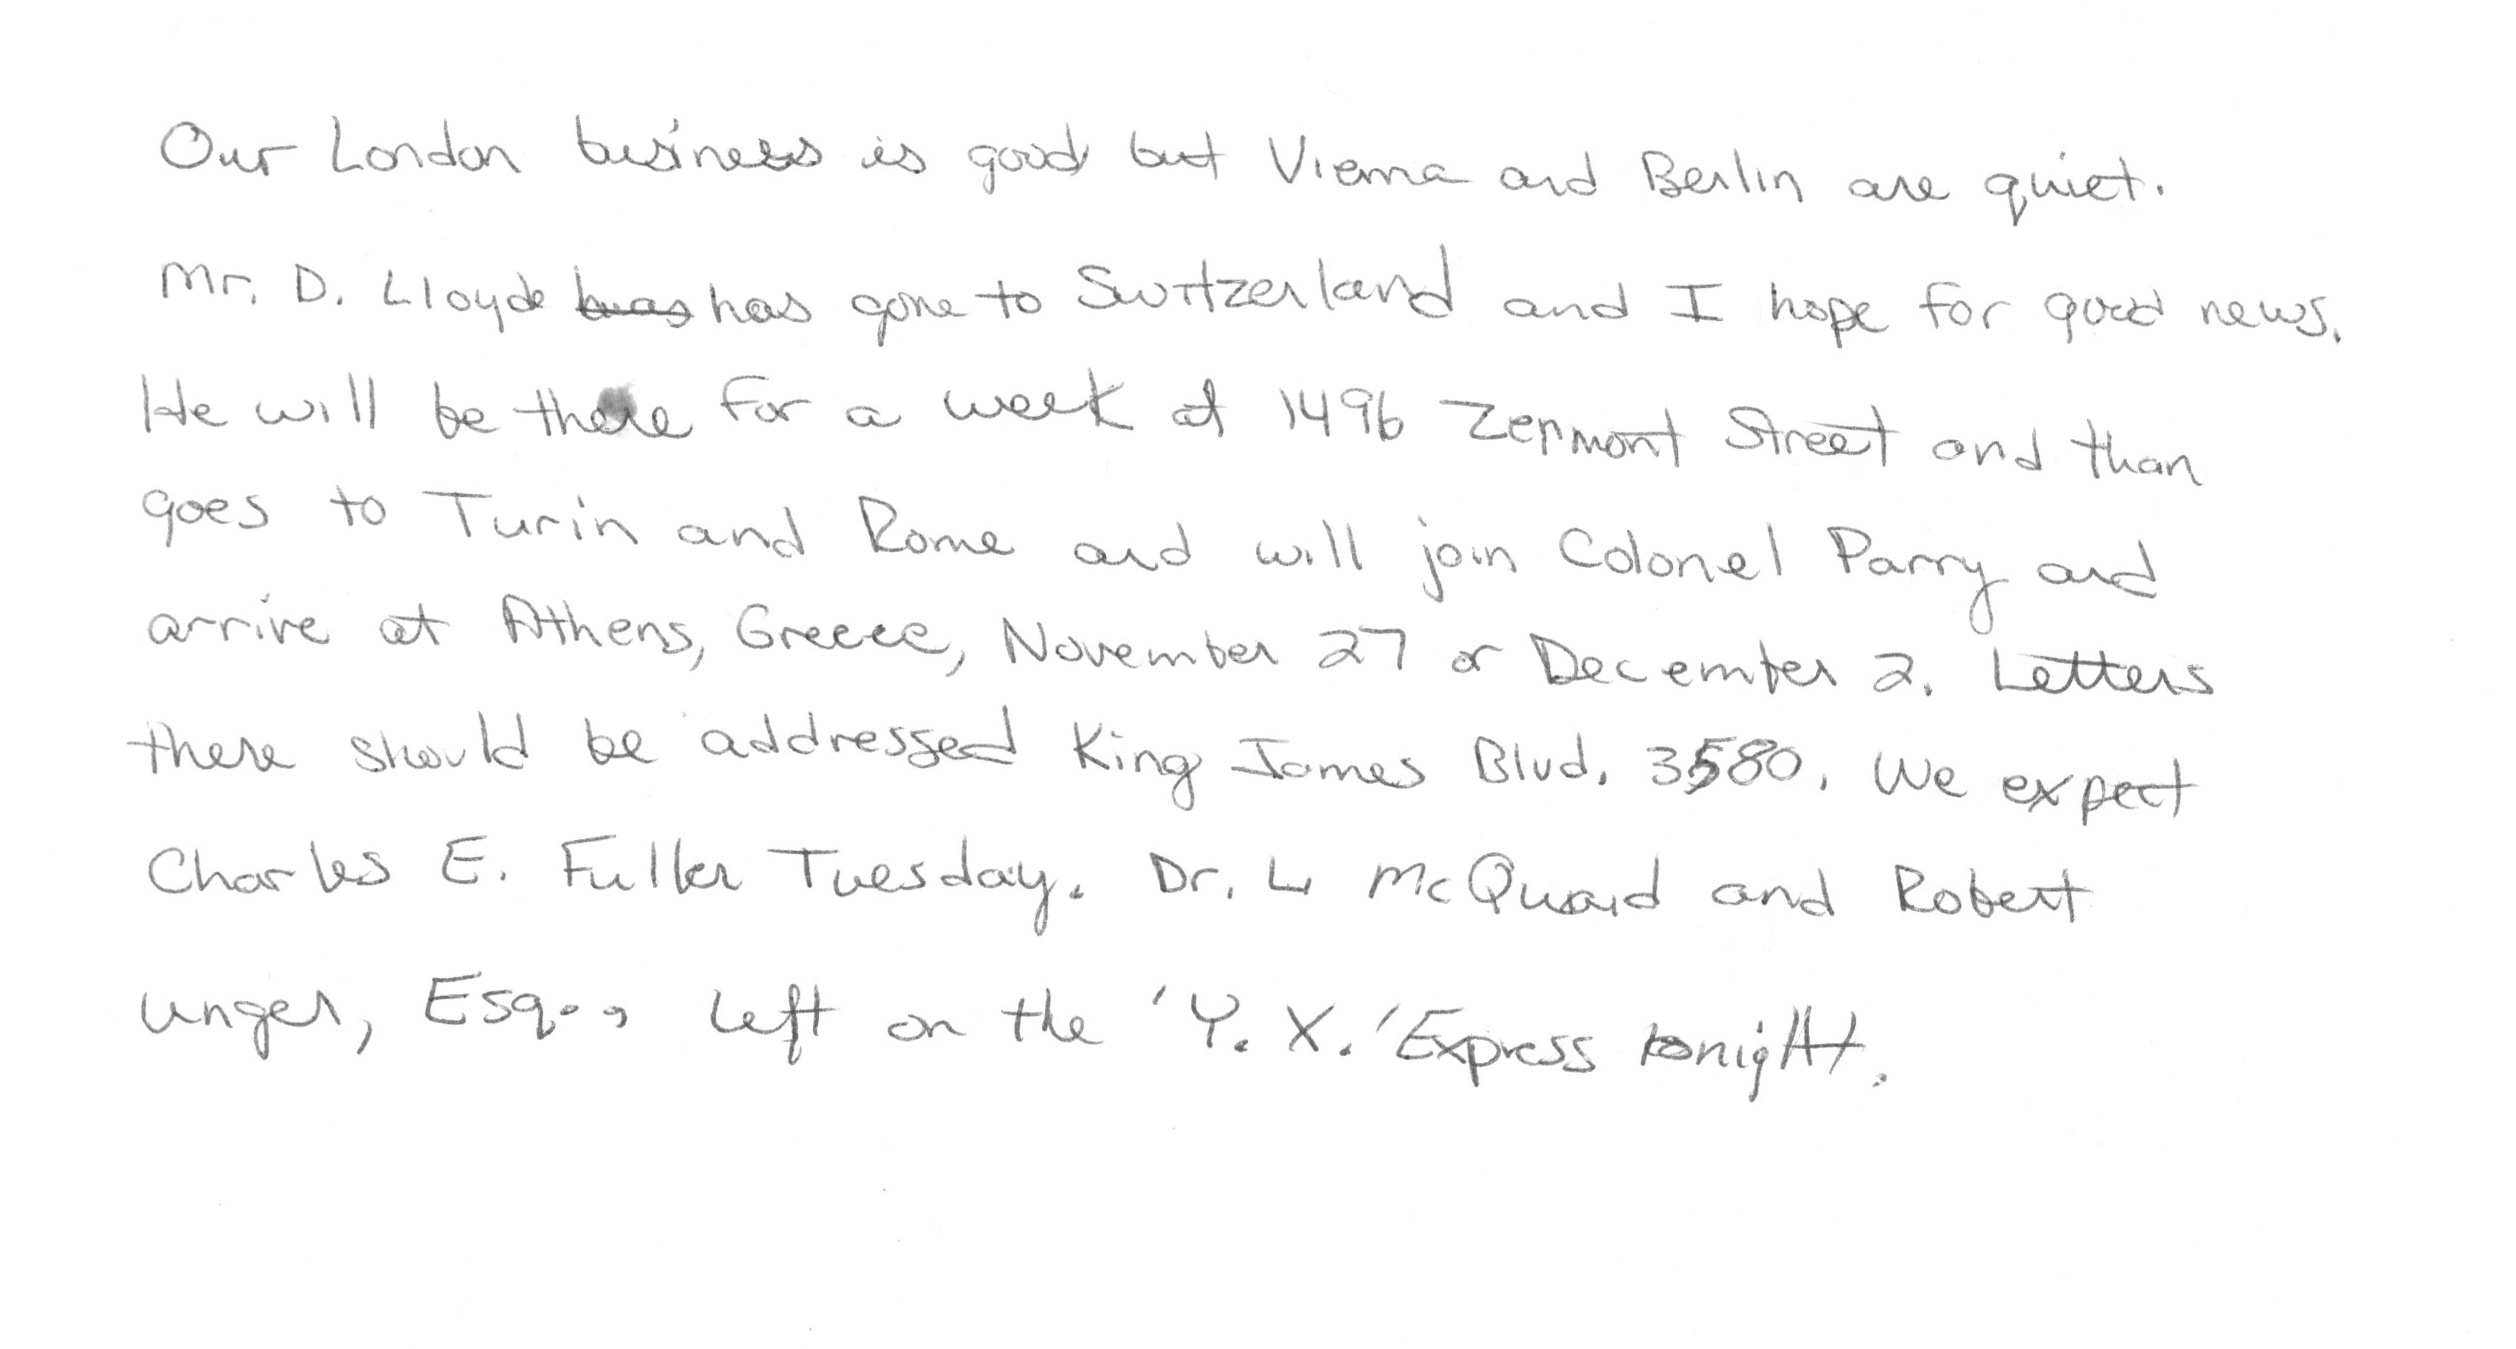 Our London business is good but Vienna and Berlin are quiet.
Mr. D. Lloyde has gone to Switzerland and I hope for good news.
He will be there for a week at 1496 Zermont Street and than
goes to Turin and Rome and will join Colonel Parry and
arrive at Athens, Greece, November 27 or December 2. Letters
there should be addressed King James Blvd. 3580. We expect
Charles E. Fuller Tuesday. Dr. L McQuaid and Robert
Unger, Esq., left on the 'Y. X.' Express tonight.